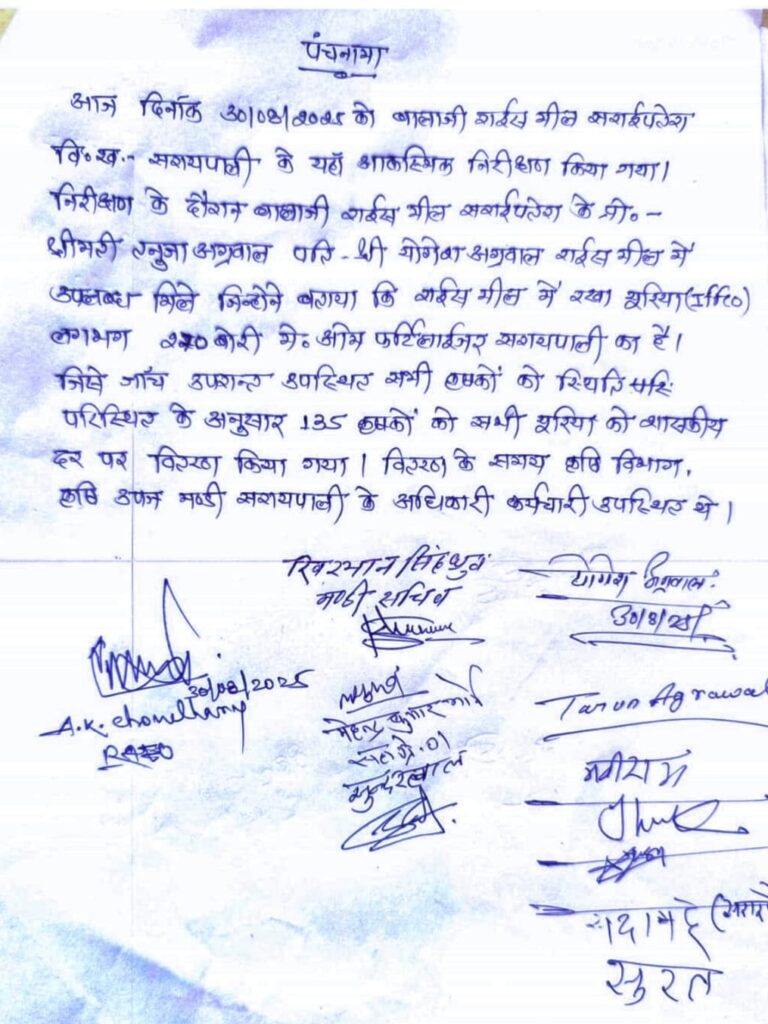 पंचनामा
आज दिनाँक 30/08/2025 को बालाजी राईस मील सराईपतेरा
वि०ख०- सरायपाली के यहाँ आकस्मिक निरीक्षण किया गया।
निरीक्षण के दौरान बालाजी राईस मील सराईपतेरा के प्रो०-
श्रीमती तनुजा अग्रवाल पति - श्री योगेश अग्रवाल राईस मील में
उपलब्ध मिले जिन्होंने बताया कि राईस मील में रखा यूरिया (Iffco)
लगभग 270 बोरी मे० ओम फर्टिलाईजर सरायपाली का है।
जिसे जाँच उपरान्त उपस्थित सभी कृषकों को स्थिति
परिस्थित के अनुसार 135 कृषकों को सभी यूरिया को शासकीय
दर पर वितरण किया गया। वितरण के समय कृषि विभाग,
कृषि उपज मण्डी सरायपाली के अधिकारी कर्मचारी उपस्थित थे।
सिंह ध्रुव
मण्डी सचिव
योगेश अग्रवाल
30/8/25
30/08/2025
A.K. Chowdhary
RAEO
कुमार
सहा० ग्रे. 01
Tarun Agrawal
मनीराम
सुरत